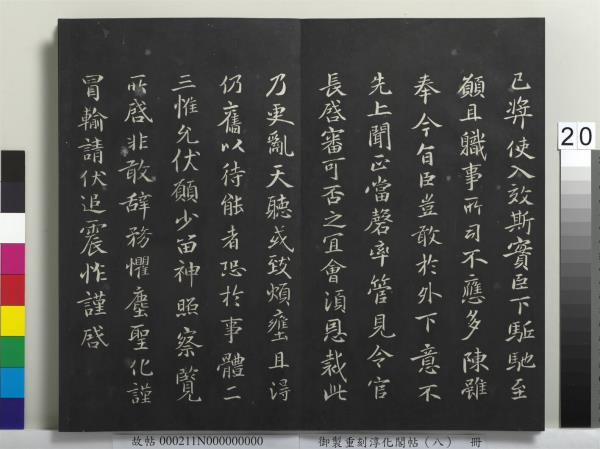 已獎使入效斯實臣下駈馳至
願且職事所司不應多陳雖
奉令旨臣豈敢於外下意不
先上聞正當罄率管見令官
長啓審可否之宜會須恩裁此
乃更亂天聽或致煩壅且得
仍舊以待能者恐於事體二
三惟允伏願少留神照察覽
所啓非敢辭務懼塵聖化謹
冒輸請伏追震怍謹啓
故帖 000211N000000000
御製重刻淳化閣帖（八） 冊
20